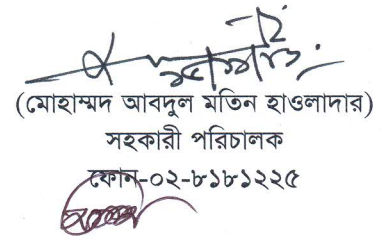 (মোহাম্মদ আবদুল মতিন হাওলাদার)
সহকারী পরিচালক
ফোন-০২-৮১৮১২২৫